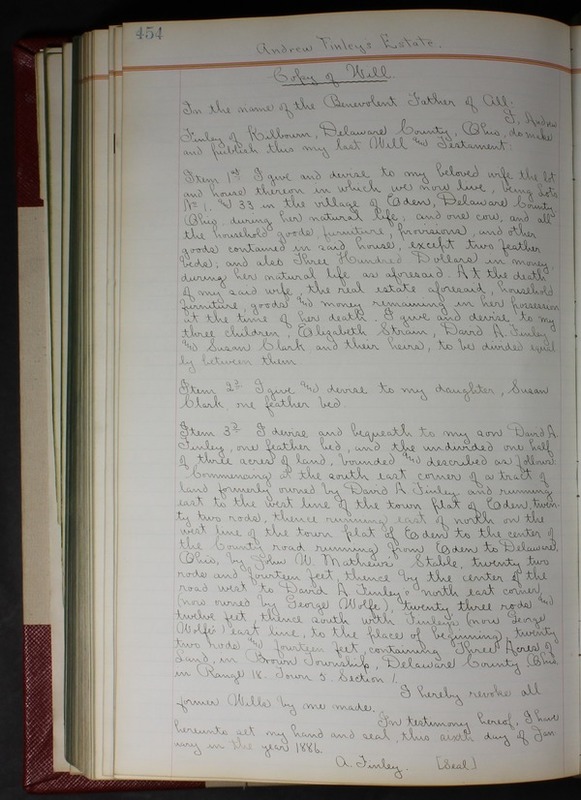 454
Andrew Finley's Estate.
Copy of Will.
In the name of the Benevolent Father of All:
I, Andrew
Finley of Kilbourn, Delaware County, Ohio, do make
and publish this my last Will and Testament:
Item 1st I give and devise to my beloved wife the lot
and house thereon in which we now live, being Lots
No 1. & 33 in the village of Eden, Delaware County
Ohio, during her natural life, and one cow, and all
the household goods, furniture, provisions, and other
goods contained in said house, except two feather
beds; and also Three Hundred Dollars in money,
during her natural life as aforesaid. At the death
of my said wife the real estate aforesaid, household
furniture, goods and money remaining in her possession
at the time of her death. I give and devise to my
three children, Elizabeth Strain, David A. Finley
and Susan Clark and their heirs, to be divided equal
ly between them.
Item 2d I give and devise to my daughter, Susan
Clark, one feather bed.
Item 3d I devise and bequeath to my son David A.
Finley, one feather bed, and the undivided one half
of three acres of land, bounded and described as follows:
Commencing at the south east corner of a tract of
land formerly owned by David A Finley and running
east to the west line of the town plat of Eden, twen-
ty two rods, thence running east of north on the
west line of the town plat of Eden to the center of
the County road running from Eden to Delaware,
Ohio, by John W. Mathews' Stable, twenty two
rods and fourteen feet, thence by the center of the
road west to David A Finley's north east corner,
(now owned by George Wolfe), twenty three rods and
twelve feet, thence south with Finley's (now George
Wolfe's) east line, to the place of beginning, twenty
two rods and fourteen feet, containing Three Acres of
Land, in Brown Township, Delaware County Ohio
in Range 18. Town 5. Section 1.
I hereby revoke all
former Wills by me made.
In testimony hereof, I have
hereunto set my hand and seal, this sixth day of Jan
uary in the year 1886.
A. Finley. [Seal]